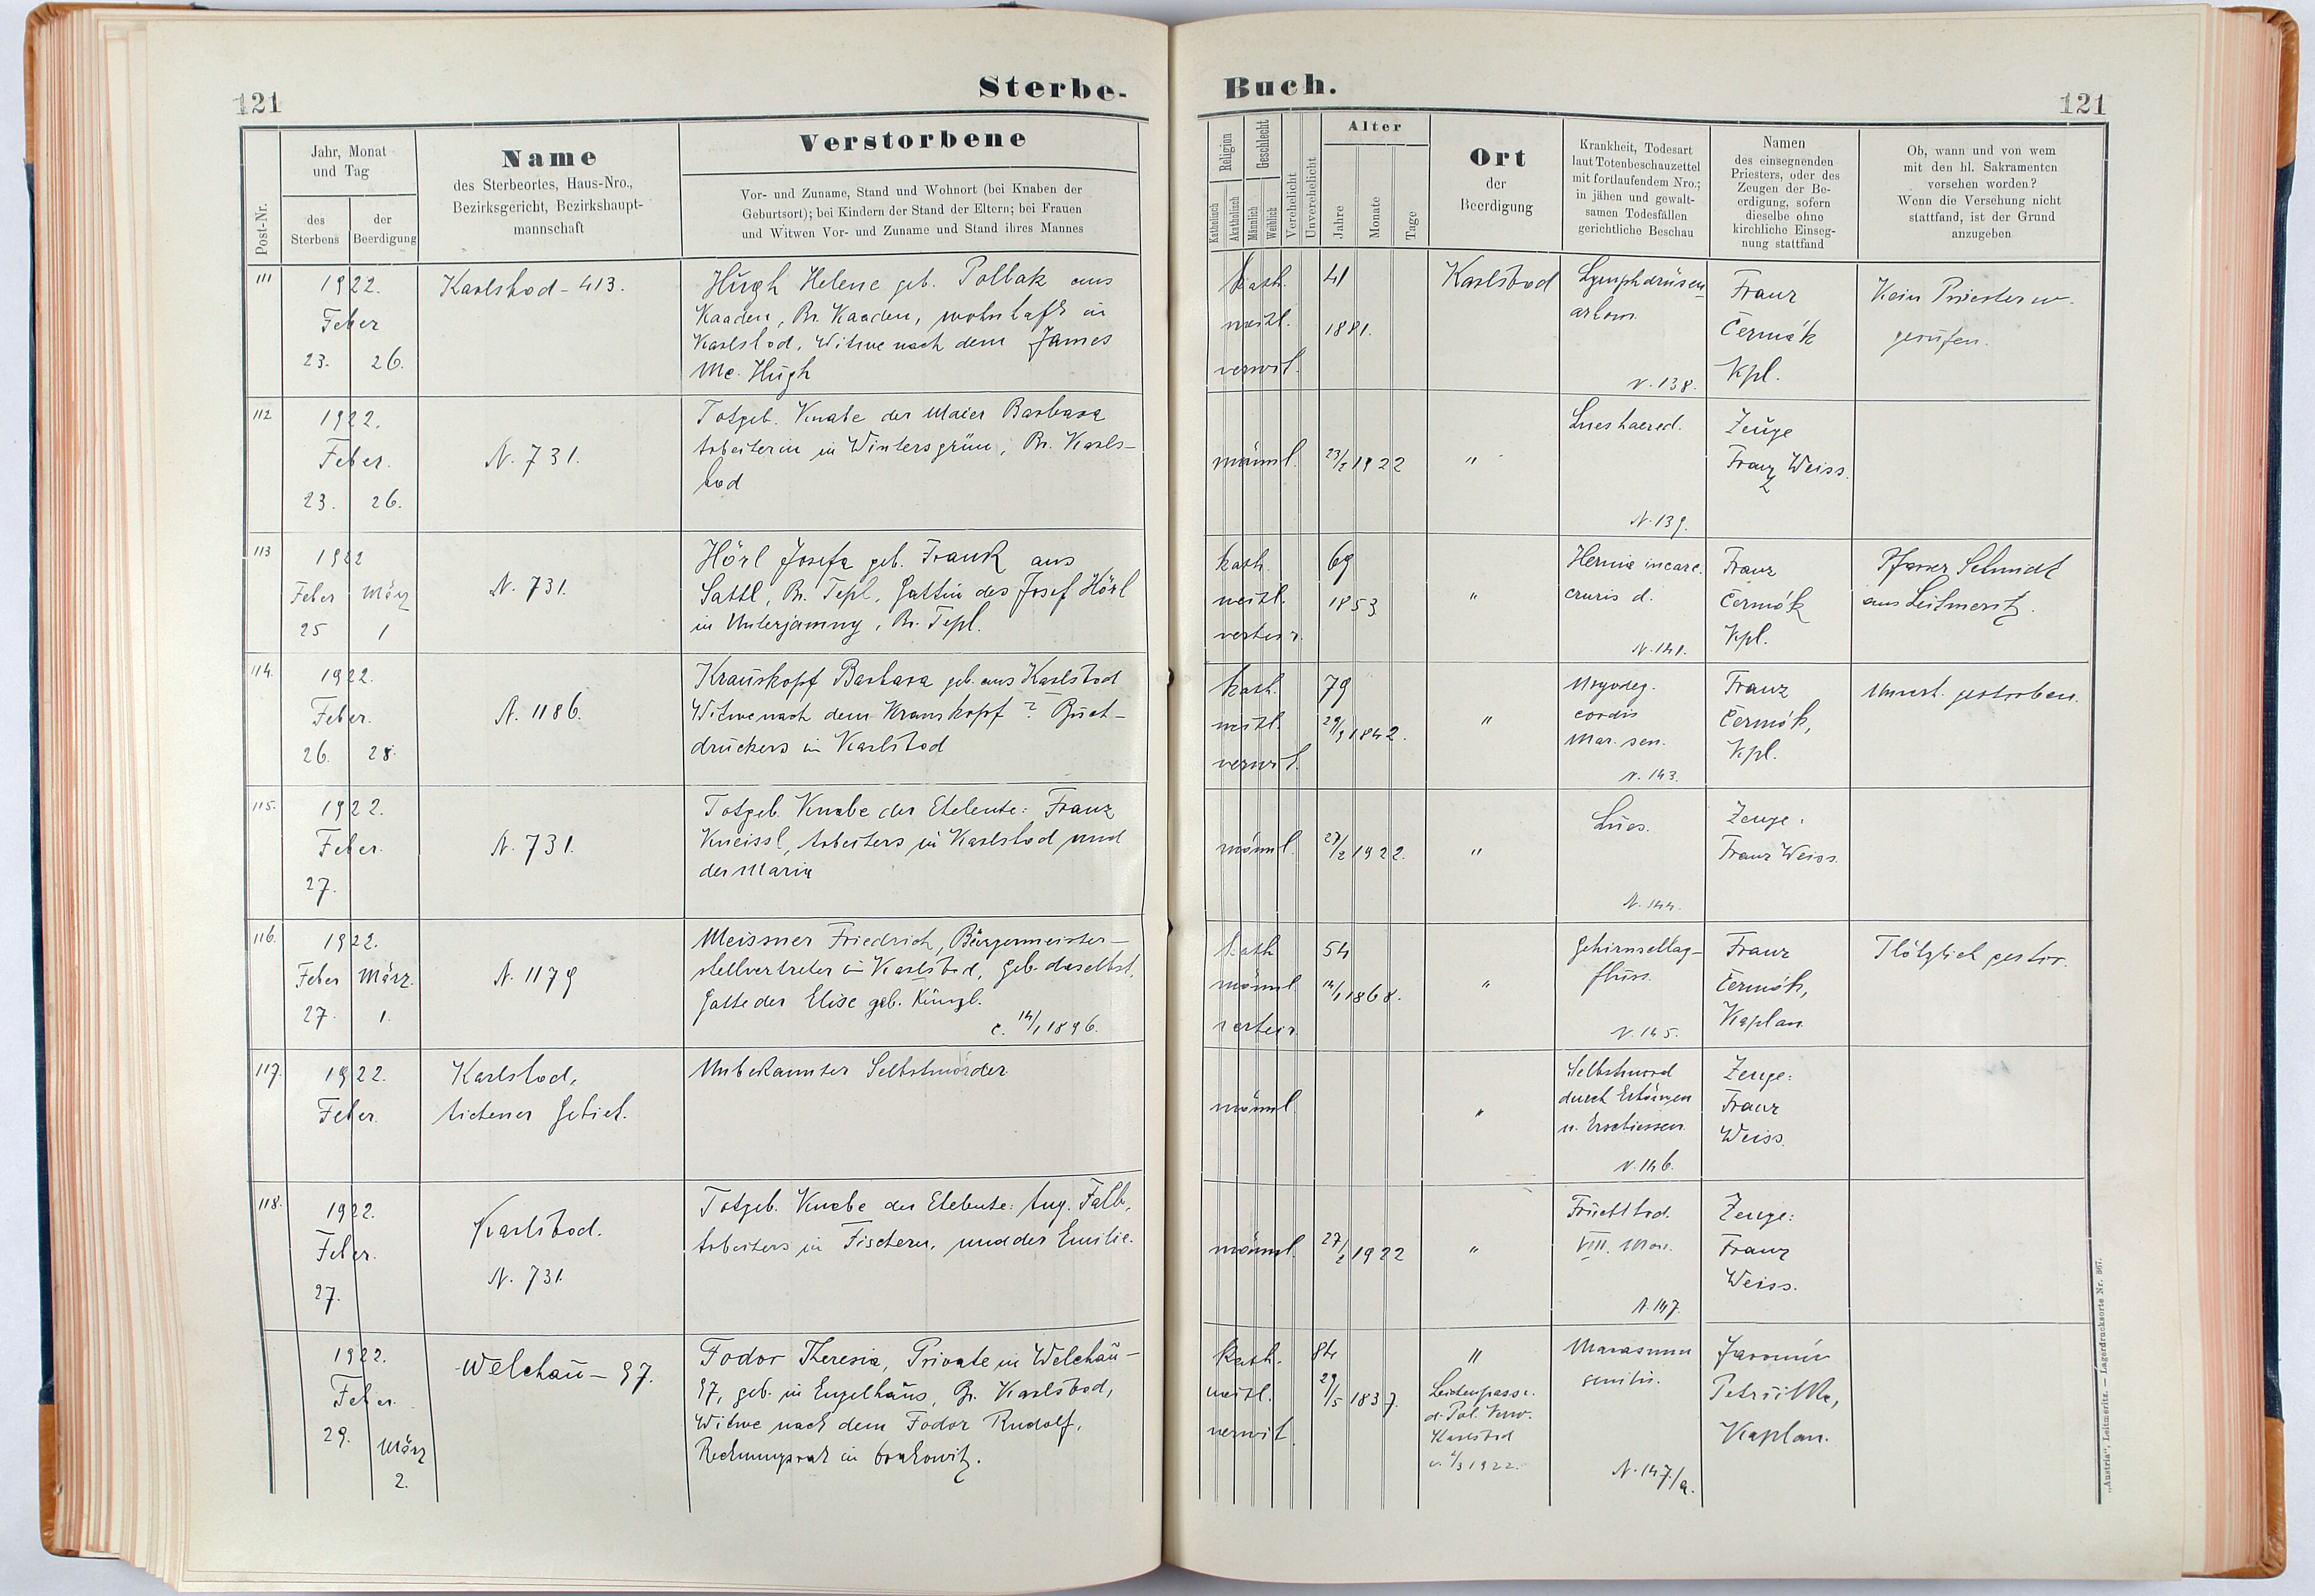 121
Sterbe-
Buch.
121
Post-Nr.
Jahr, Monat
und Tag
des
Sterbens
der
Beerdigung
Name
des Sterbeortes, Haus-Nro.,
Bezirksgericht, Bezirkshaupt-
mannschaft
Verstorbene
Vor- und Zuname, Stand und Wohnort (bei Knaben der
Geburtsort); bei Kindern der Stand der Eltern; bei Frauen
und Witwen Vor- und Zuname und Stand ihres Mannes
Religion
Katholisch
Akatholisch
Geschlecht
Männlich
Weiblich
Verehelicht
Unverehelicht
Alter
Jahre
Monate
Tage
Ort
der
Beerdigung
Krankheit, Todesart
laut Totenbeschauzettel
mit fortlaufendem Nro.;
in jähen und gewalt-
samen Todesfällen
gerichtliche Beschau
Namen
des einsegnenden
Priesters, oder des
Zeugen der Be-
erdigung, sofern
dieselbe ohne
kirchliche Einseg-
nung stattfand
Ob, wann und von wem
mit den hl. Sakramenten
versehen worden?
Wenn die Versehung nicht
stattfand, ist der Grund
anzugeben
111
1922.
Feber
23. 26.
Karlsbad - 413.
Hugh Helene geb. Pollak aus
Kaaden, Bz. Kaaden, wohnhaft in
Karlsbad, Witwe nach dem James
Mc. Hugh
kath.
weibl.
verwit.
41
1881.
Karlsbad
Lymphdrüsen-
N. 138.
Franz
Čermák
Kpl.
Kein Priester w.
gerufen.
112
1922.
Feber.
23. 26.
N. 731.
Totgeb. Knabe der Maier Barbara
Arbeiterin in Wintersgrün, Bz. Karls-
bad
männl.
23/2 1922
"
Lues haered.
N. 139.
Zeuge
Franz Weiss.
113
1922
Feber März
25 1
N. 731.
Hörl Josefa geb. Frank aus
Sattl, Bz. Tepl, Gattin des Josef Hörl
in Unterjamny, Bz. Tepl.
kath.
weibl.
verheir.
69
1853
"
Hernia incarc.
cruris d.
N. 141.
Franz
Čermák
Kpl.
Pfarrer Schmidt
aus Leitmeritz.
114.
1922.
Feber.
26. 28.
N. 1186.
Krauskopf Barbara geb. aus Karlsbad
Witwe nach dem Krauskopf ? Buch-
druckers in Karlsbad
kath.
weibl.
verwit.
79
29/9 1842.
"
Myodeg.
cordis
Mar. sen.
N. 143.
Franz
Čermák,
Kpl.
Unverh. gestorben.
115.
1922.
Feber.
27.
N. 731.
Totgeb. Knabe der Eheleute: Franz
Kneissl, Arbeiters in Karlsbad und
der Maria
männl.
27/2 1922.
"
Lues.
N. 144.
Zeuge:
Franz Weiss.
116.
1922.
Feber März.
27. 1.
N. 1179
Meissner Friedrich, Bürgermeister-
stellvertreter in Karlsbad, geb. daselbst,
Gatte der Elise geb. Künzl.
c. 14/1 1896.
kath
männl
verheir.
54
14/1 1868.
"
Gehirnschlag-
fluss.
N. 145.
Franz
Čermák,
Kaplan.
Plötzlich gestor.
117.
1922.
Feber.
Karlsbad,
Aicher Gebiet.
Unbekannter Selbstmörder
männl
"
Selbstmord
durch Erhängen
u. Erschiessen.
N. 146.
Zeuge:
Franz
Weiss.
118.
1922.
Feber.
27.
Karlsbad.
N. 731.
Totgeb. Knabe der Eheleute: Aug. Falb,
Arbeiters in Fischern, und der Emilie.
männl.
27/2 1922
"
Fruchttod.
VIII. Mon.
N. 147.
Zeuge:
Franz
Weiss.
1922.
Feber.
29. März
2.
Welchau - 97.
Fodor Theresia, Private in Welchau-
97, geb. in Engelhaus, Bz. Karlsbad,
Witwe nach dem Fodor Rudolf,
Rechnungsrat in
Kath.
weibl.
verwit.
84
29/5 1837.
"
Leichenpass v.
d. Pol. Verw.
Karlsbad
v. 1/3 1922.
Marasmus
senilis.
N. 147/a.
Jaromír
Petruška,
Kaplan.
„Austria“, Leitmeritz. — Lagerdrucksorte Nr. 667.